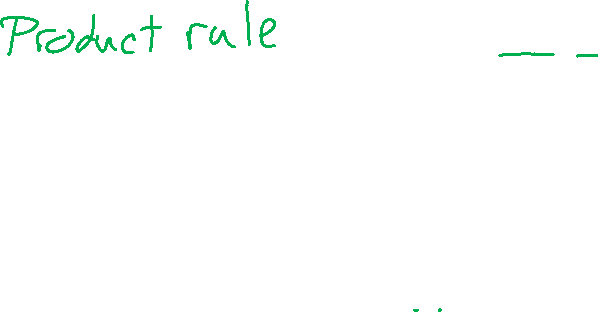 Product rule